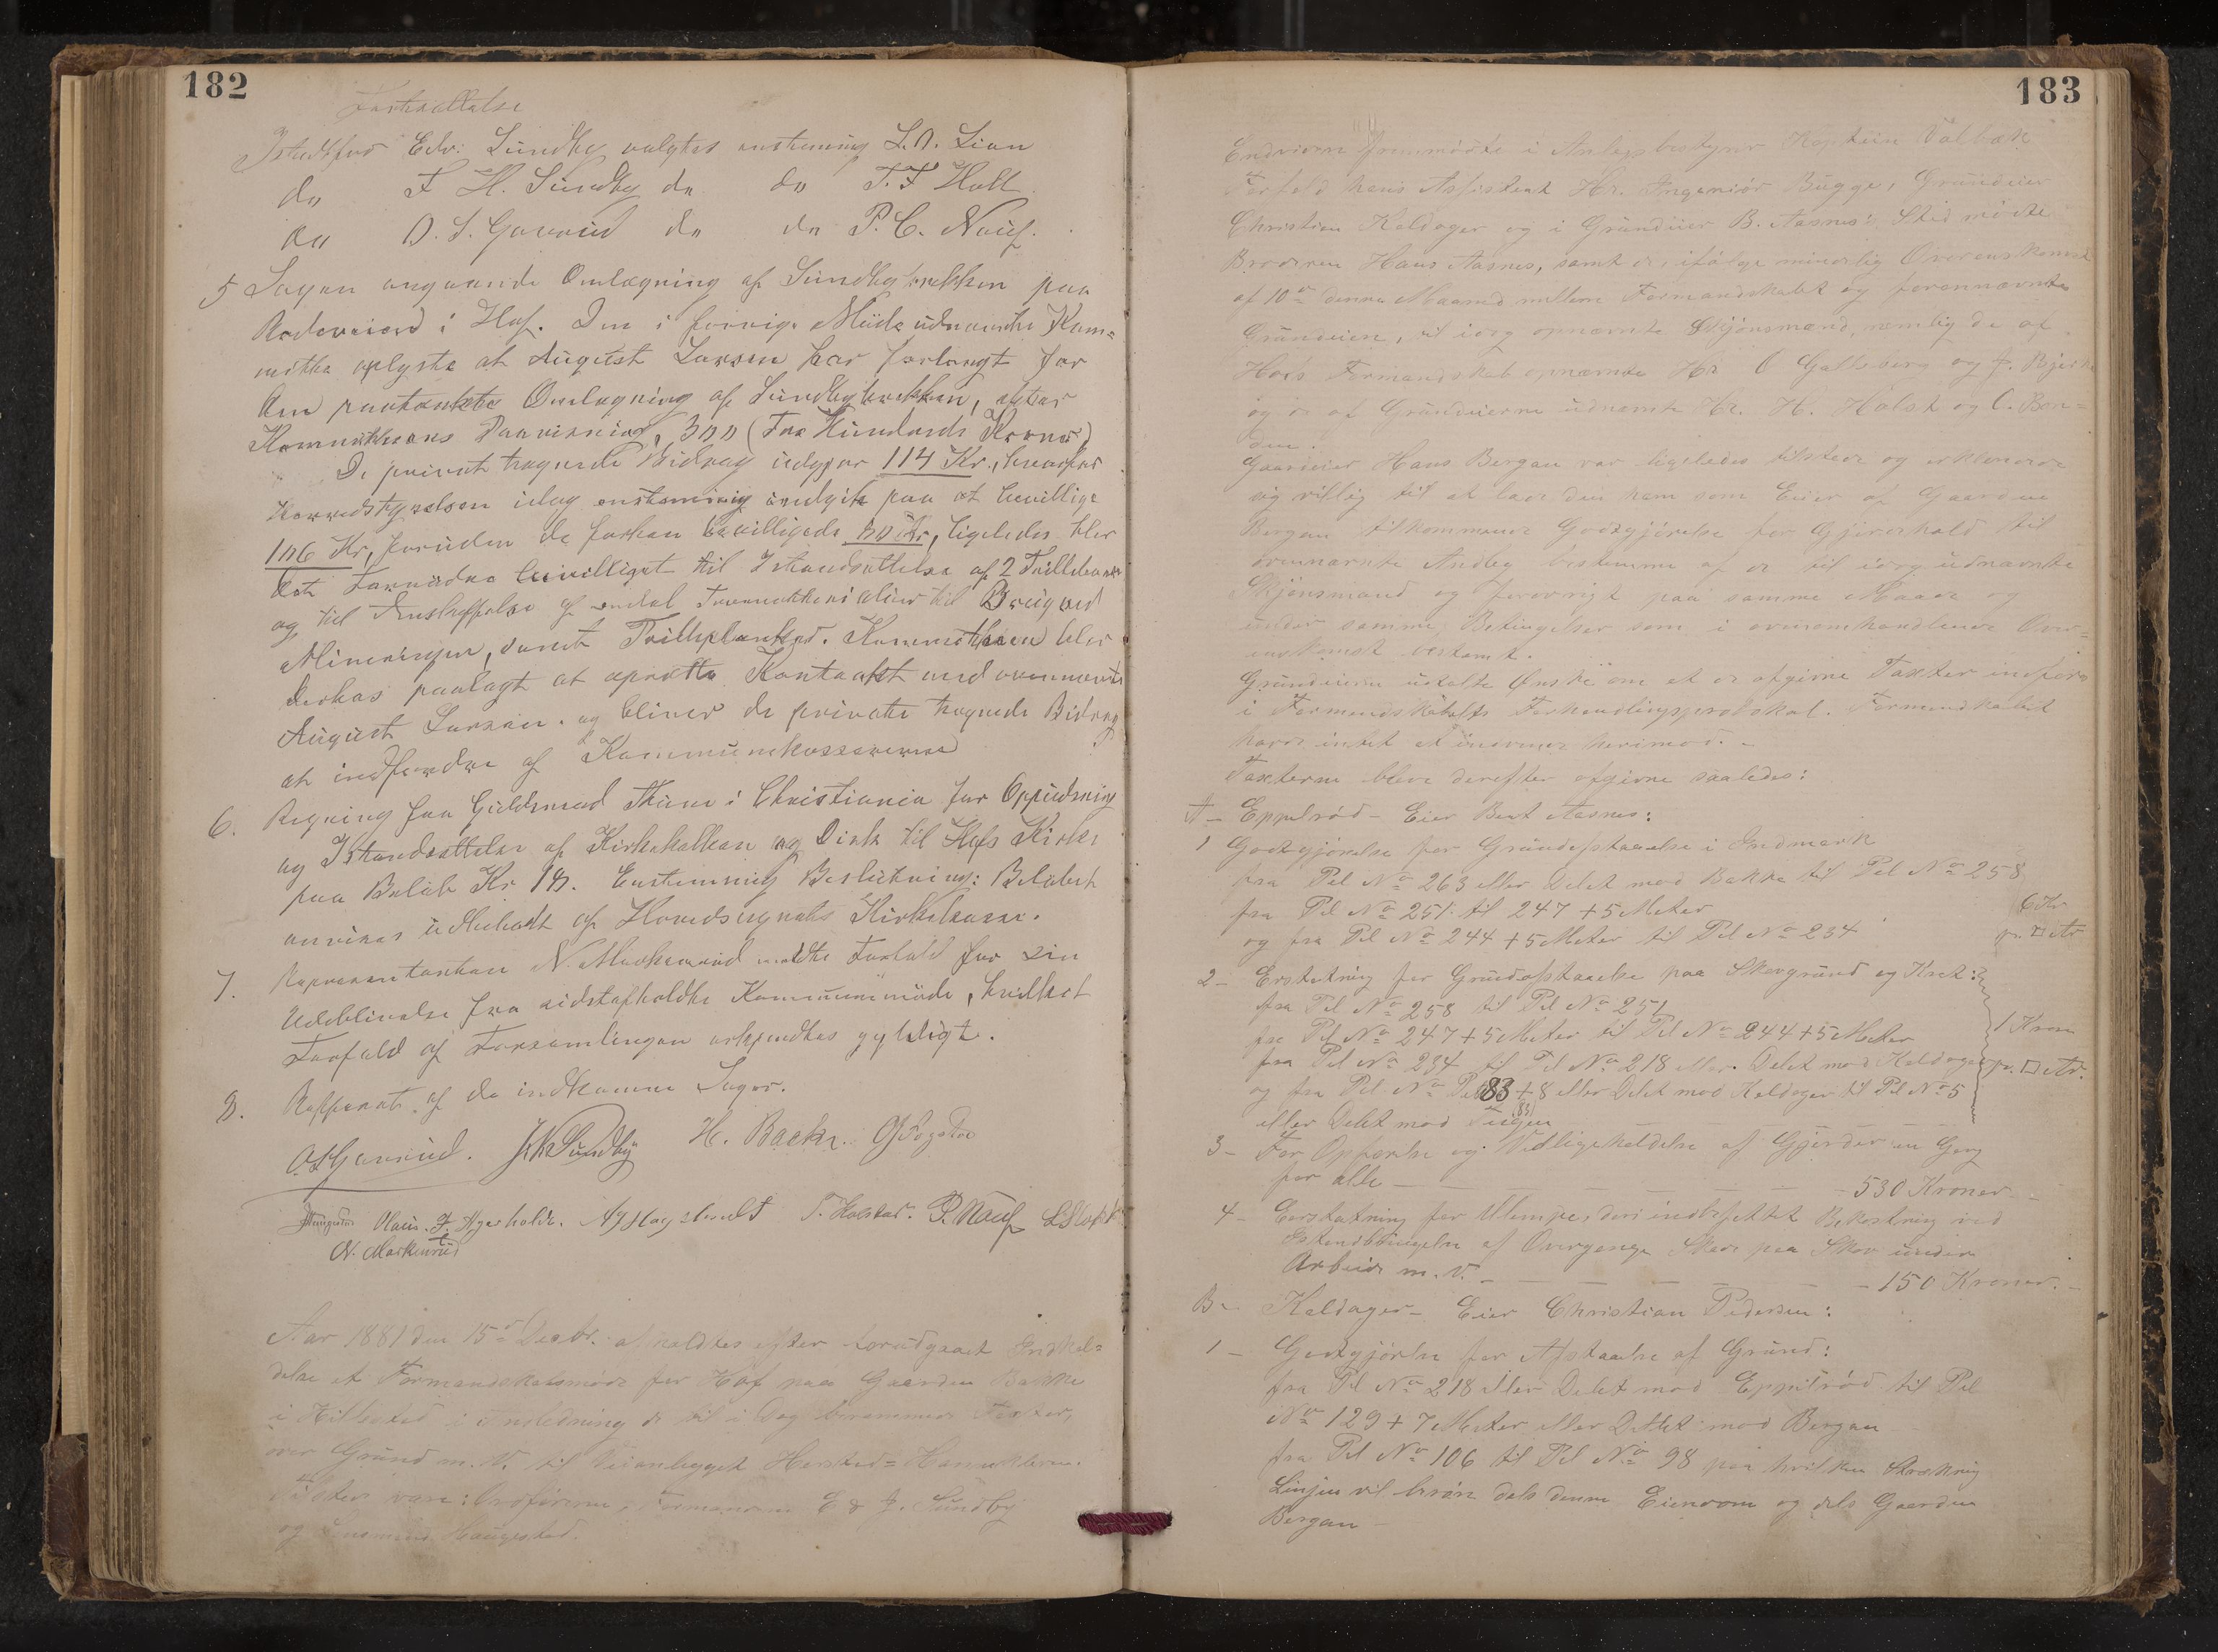 182
Fortsættelse
Istedfor Edv: Sundby valgtes enstemmig L. A. Lian
do F H. Sundby do do T. F Holt
do O. S. Gaverud do do P. C. Nauf.
5 Sagen angaaende Omlægning af Sundbybakken paa
Rodeveien i Hof. Den i forrige Møde udnævnte Kom=
mitte oplyste at August Larsen har forlangt for
den paatænkte Omlægning af Sundbybakken, efter
Kommitteens Paavisning, 300 (Tre Hundrede Kroner)
De privat tegnede Bidrag udgjør 114 Kr., hvorfor
Herredstyrelsen idag enstemmig paa at bevillige
106 Kr, foruden de forhen bevilligede 80 Kr, ligeledes blev
det Fornødne bevilliget til Istandsættelse af 2 Trillebaarer
og til Anskaffelse af endel til Brug ved
Mineringen, samt Trilleplanker. Kommitteen blev
derhos paalagt at oprette Kontrakt med ovennævnte
August Larsen. og bliver de private tegnede Bidrag
at indfordre af Kommunekassereren
6. Regning fra Guldsmed Thune i Christiania for Oppudsning
og Istandsættelse af Kirkekalken og Disk til Hofs Kirke
paa Beløb Kr 18. Enstemmig Beslutning: Beløbet
anvises udbetalt af Hovedsognets Kirkekasse.
7. Repræsentanten N. Markerud meldte Forfald for sin
Udeblivelse fra sidstafholdte Kommunemøde, hvilket
Forfald af Forsamlingen erkjendtes gyldigt.
8. Refferat af de indkomne Sager.
O. S. Gaverud. J. H. Sundby H. Backe.
Olaus. F. Agerholdt. T. Holstad. P. Nauf
N. Markerud
Aar 1881 den 15de Decbr. afholdtes efter forudgaaet Indkal=
delse et Formandskabsmøde for Hof paa Gaarden Bakke
i Hillestad i Anledning de til i Dag berammede Taxter,
over Grund m. V. til Veianlægget Hersted=Hanekleven.
Tilstede vare: Ordføreren, Formændene E & J. Sundby
og Haugestad.
183
Endvidere fremmødte i Anlægsbestyrer Kaptein
Forfald hans Assistent Hr. Ingeniør Bugge, Grundeier
Christian Kaldager og i Grundeier B. Aasnes' Sted mødte
Broderen Hans Aasnes, samt de ifølge mindelig Overenskomst
af 10de denne Maaned mellem Formandskabet og forennævnte
Grundeiere, til idag opnævnte Skjønsmænd, nemlig de af
Hofs Formandskab opnævnte Hr O Galleberg og J. Bjerke
og de af Grundeierne udnævnte Hr. H. Holst og C. Bon=
den.
Gaardeier Hans Bergan var ligeledes tilstede og erklærede
sig villig til at lade den ham som Eier af Gaarden
Bergan tilkommende Godtgjørelse for Gjærdehold til
ovennævnte Anlæg bestemme af de til idag udnævnte
Skjønsmænd og forøvrigt paa samme Maade og
under samme Betingelser som i ovenomhandlende Over=
enskomst bestemt.
Grundeierne udtalte Ønske om at de afgivne Taxter indføres
i Formandskabets Forhandlingsprotokol. Formandskabet
havde intet at indvende herimod. –
Taxterne bleve derefter afgivne saaledes:
A – Eppelrød – Eier Bent Aasnes:
1 Godtgjørelse for Grundafstaaelse i Indmark
fra Pel No 263 eller Delet mod Bakke til Pel No 258
fra Pel No 251 til 247 + 5 Meter
og fra Pel No 244 + 5 Meter til Pel No 234
6 Kr
pr. □ Ar
2 – Erstatning for Grundafstaaelse paa Skovgrund og Krat:
fra Pel No 258 til Pel No 251
fra Pel No 247 + 5 Meter til Pel No 244 + 5 Meter
fra Pel No 234 til Pel No 218 eller Delet mod Kaldager
og fra Pel No 83 + 8 eller Delet mod Kaldager til Pel No 5
(83)
eller Delet mod
1 Krone
pr. □ Ar.
3 – For Opførelse og Vedligeholdelse af Gjerder en Gang
for alle – – – – – 530 Kroner. –
4 – Erstatning for Ulempe, deri indbefattet Bekostning ved
Istandbringelse af Overgange Skade paa Skov under
Arbeide m. V. – – – – – 150 Kroner. –
B – Kaldager – Eier Christian Pedersen:
1 – Godtgjørelse for Afstaaelse af Grund:
fra Pel No 218 eller Delet mod Eppelrød til Pel
No 129 + 7 Meter eller Delet mod Bergan
fra Pel No 106 til Pel No 98 paa hvilken Strækning
Linjen vil berøre dels denne Eiendom og dels Gaarden
Bergan –